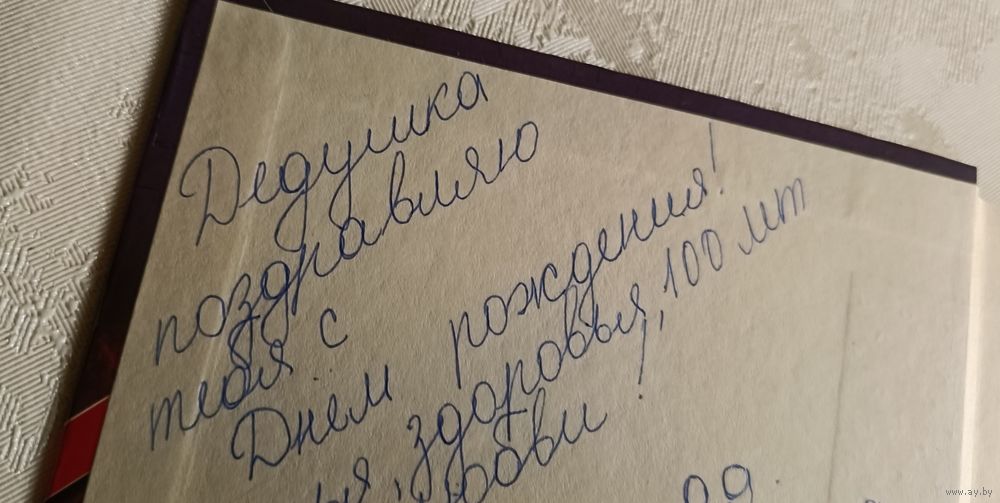 Дедушка
поздравляю
тебя с
Днем рождения!
здоровья, 100 лет
!
09
www.ay.by